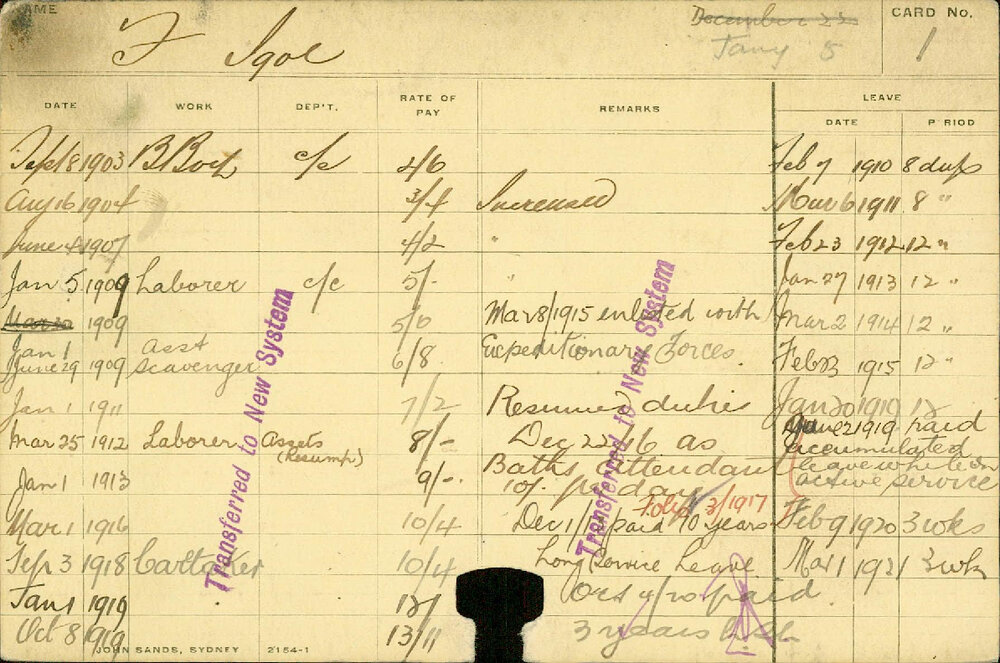 NAME F Igoe December 22 CARD No.
Jany 5 1
LEAVE
DATE WORK DEP'T. RATE OF PAY REMARKS DATE PERIOD
Sept 8 1903 B Boy c/c 2/6 Feb 7 1910 8 days
Aug 16 1904 3/4 Increased Mar 6 1911 8 "
June 4 1907 4/2 " Feb 23 1912 12 "
Jan 5 1909 Laborer c/c 5/- " Jan 27 1913 12 "
Mar 20 1909 5/0 Mar 8/1915 enlisted with Mar 2 1914 12 "
Jan 1 Asst Expeditionary Forces
June 29 1909 Scavenger 6/8 Feb 23 1915 12 "
Jan 1 1911 7/2 Resumes duties Jan 20 1919 12
Mar 25 1912 Laborer Assets 8/- Dec 22/16 as June 2 1919 paid
(Resump) accumulated
Jan 1 1913 9/- Baths Attendant leave whilst on
10/- per day active service
Folio 3/1917
Mar 1 1916 10/4 Dec 1/19 paid 10 years Feb 9 1920 3 wks
Sep 3 1918 Caretaker 10/4 Long Service Leave Mar 1 1921 3 wks
Jan 1 1919 12/1 Oct 4/20 paid
Oct 8 1919 13/11 3 years
Transferred to New System
Transferred to New System
JOHN SANDS, SYDNEY 2154-1